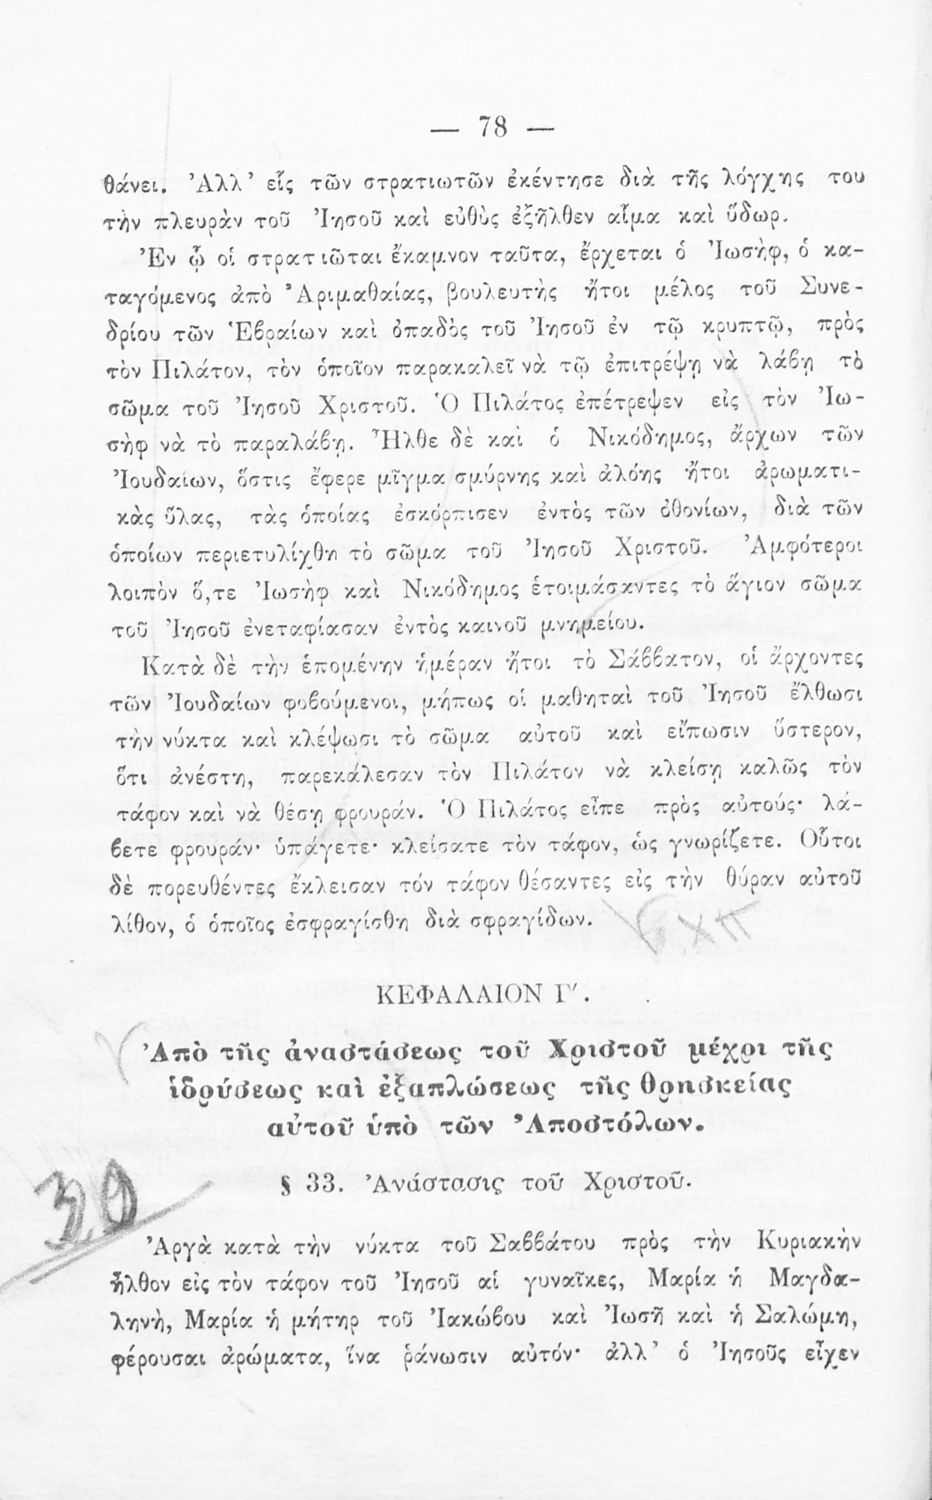 — 78 —
θάνει. Ἀλλ' εἷς τῶν στρατιωτῶν ἐκέντησε διὰ τῆς λόγχης του
τὴν πλευρὰν τοῦ Ἰησοῦ καὶ εὐθὺς ἐξῆλθεν αἷμα καὶ ὕδωρ.
Ἐν ᾧ οἱ στρατιῶται ἔκαμνον ταῦτα, ἔρχεται ὁ Ἰωσὴφ, ὁ κα-
ταγόμενος ἀπὸ Ἀριμαθαίας, βουλευτὴς ἤτοι μέλος τοῦ Συνε-
δρίου τῶν Ἑβραίων καὶ ὀπαδὸς τοῦ Ἰησοῦ ἐν τῷ κρυπτῷ, πρὸς
τὸν Πιλάτον, τὸν ὁποῖον παρακαλεῖ νὰ τῷ ἐπιτρέψῃ νὰ λάβῃ τὸ
σῶμα τοῦ Ἰησοῦ Χριστοῦ. Ὁ Πιλάτος ἐπέτρεψεν εἰς τὸν Ἰω-
σὴφ νὰ τὸ παραλάβῃ. Ἦλθε δὲ καὶ ὁ Νικόδημος, ἄρχων τῶν
Ἰουδαίων, ὅστις ἔφερε μῖγμα σμύρνης καὶ ἀλόης ἤτοι ἀρωματι-
κὰς ὕλας, τὰς ὁποίας ἐσκόρπισεν ἐντὸς τῶν ὀθονίων, διὰ τῶν
ὁποίων περιετυλίχθη τὸ σῶμα τοῦ Ἰησοῦ Χριστοῦ. Ἀμφότεροι
λοιπὸν ὅ,τε Ἰωσὴφ καὶ Νικόδημος ἑτοιμάσαντες τὸ ἅγιον σῶμα
τοῦ Ἰησοῦ ἐνεταφίασαν ἐντὸς καινοῦ μνημείου.
Κατὰ δὲ τὴν ἑπομένην ἡμέραν ἤτοι τὸ Σάββατον, οἱ ἄρχοντες
τῶν Ἰουδαίων φοβούμενοι, μήπως οἱ μαθηταὶ τοῦ Ἰησοῦ ἔλθωσι
τὴν νύκτα καὶ κλέψωσι τὸ σῶμα αὐτοῦ καὶ εἴπωσιν ὕστερον,
ὅτι ἀνέστη, παρεκάλεσαν τὸν Πιλάτον νὰ κλείσῃ καλῶς τὸν
τάφον καὶ νὰ θέσῃ φρουράν. Ὁ Πιλάτος εἶπε πρὸς αὐτούς· λά-
βετε φρουράν· ὑπάγετε· κλείσατε τὸν τάφον, ὡς γνωρίζετε. Οὗτοι
δὲ πορευθέντες ἔκλεισαν τόν τάφον θέσαντες εἰς τὴν θύραν αὐτοῦ
λίθον, ὁ ὁποῖος ἐσφραγίσθη διὰ σφραγίδων.
ΚΕΦΑΛΑΙΟΝ Γ'.
Ἀπὸ τῆς ἀναστάσεως τοῦ Χριστοῦ μέχρι τῆς
ἱδρύσεως καὶ ἐξαπλώσεως τῆς θρησκείας
αὐτοῦ ὑπὸ τῶν Ἀποστόλων.
30
§ 33. Ἀνάστασις τοῦ Χριστοῦ.
Ἀργὰ κατὰ τὴν νύκτα τοῦ Σαββάτου πρὸς τὴν Κυριακὴν
ἦλθον εἰς τὸν τάφον τοῦ Ἰησοῦ αἱ γυναῖκες, Μαρία ἡ Μαγδα-
ληνὴ, Μαρία ἡ μήτηρ τοῦ Ἰακώβου καὶ Ἰωσῆ καὶ ἡ Σαλώμη,
φέρουσαι ἀρώματα, ἵνα ῥάνωσιν αὐτόν· ἀλλ' ὁ Ἰησοῦς εἶχεν